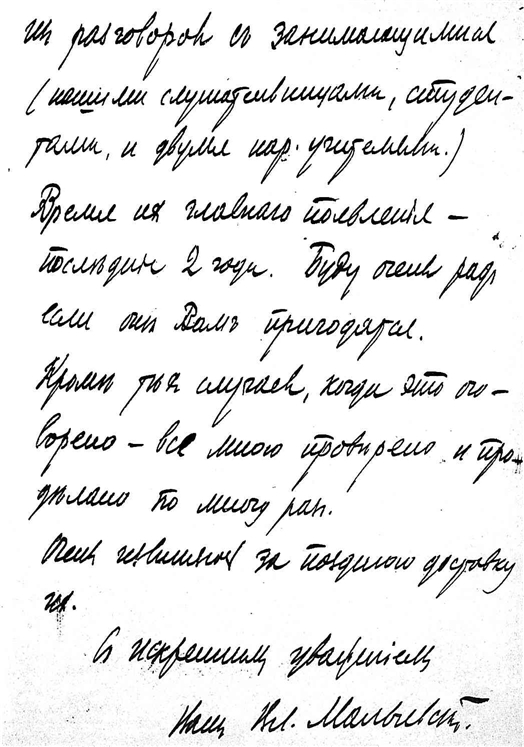 их разговоров съ занимающимися
(нашими слушательницами, студен-
тами, и двумя нар. учительн.)
Время их главнаго появленія —
последніе 2 года. Буду очень радъ
если они Вамъ пригодятся.
Кромѣ тѣх случаев, когда это ого-
ворено — все мною провѣрено и про-
дѣлано по многу раз.
Очень извиняюсь за позднюю доставку
их.
С искренним уваженіем
Вл.